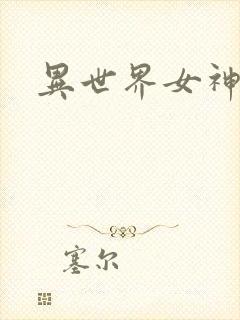 異世界女神
塞尔